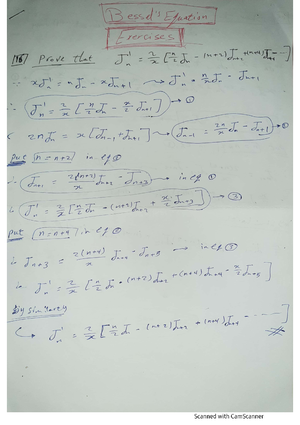 Bessel's Equation
Exercises
[16] Prove that J'n = 2/x [n/2 Jn - (n+2)Jn+2 + (n+4)Jn+4 - ...]
∵ xJ'n = nJn - xJn+1 → J'n = n/x Jn - Jn+1
∴ J'n = 2/x [n/2 Jn - x/2 Jn+1] → ①
2nJn = x[Jn-1 + Jn+1] → Jn-1 = 2n/x Jn - Jn+1 → ②
Put n = n+2 in eq ②
∴ Jn+1 = 2(n+2)/x Jn+2 - Jn+3 → in eq ①
∴ J'n = 2/x [n/2 Jn - (n+2)Jn+2 + x/2 Jn+3] → ③
Put n = n+4 in eq ②
∴ Jn+3 = 2(n+4)/x Jn+4 - Jn+5 → in eq ③
∴ J'n = 2/x [n/2 Jn - (n+2)Jn+2 + (n+4)Jn+4 - x/2 Jn+5]
By
↳ J'n = 2/x [n/2 Jn - (n+2)Jn+2 + (n+4)Jn+4 - ...]
Scanned with CamScanner